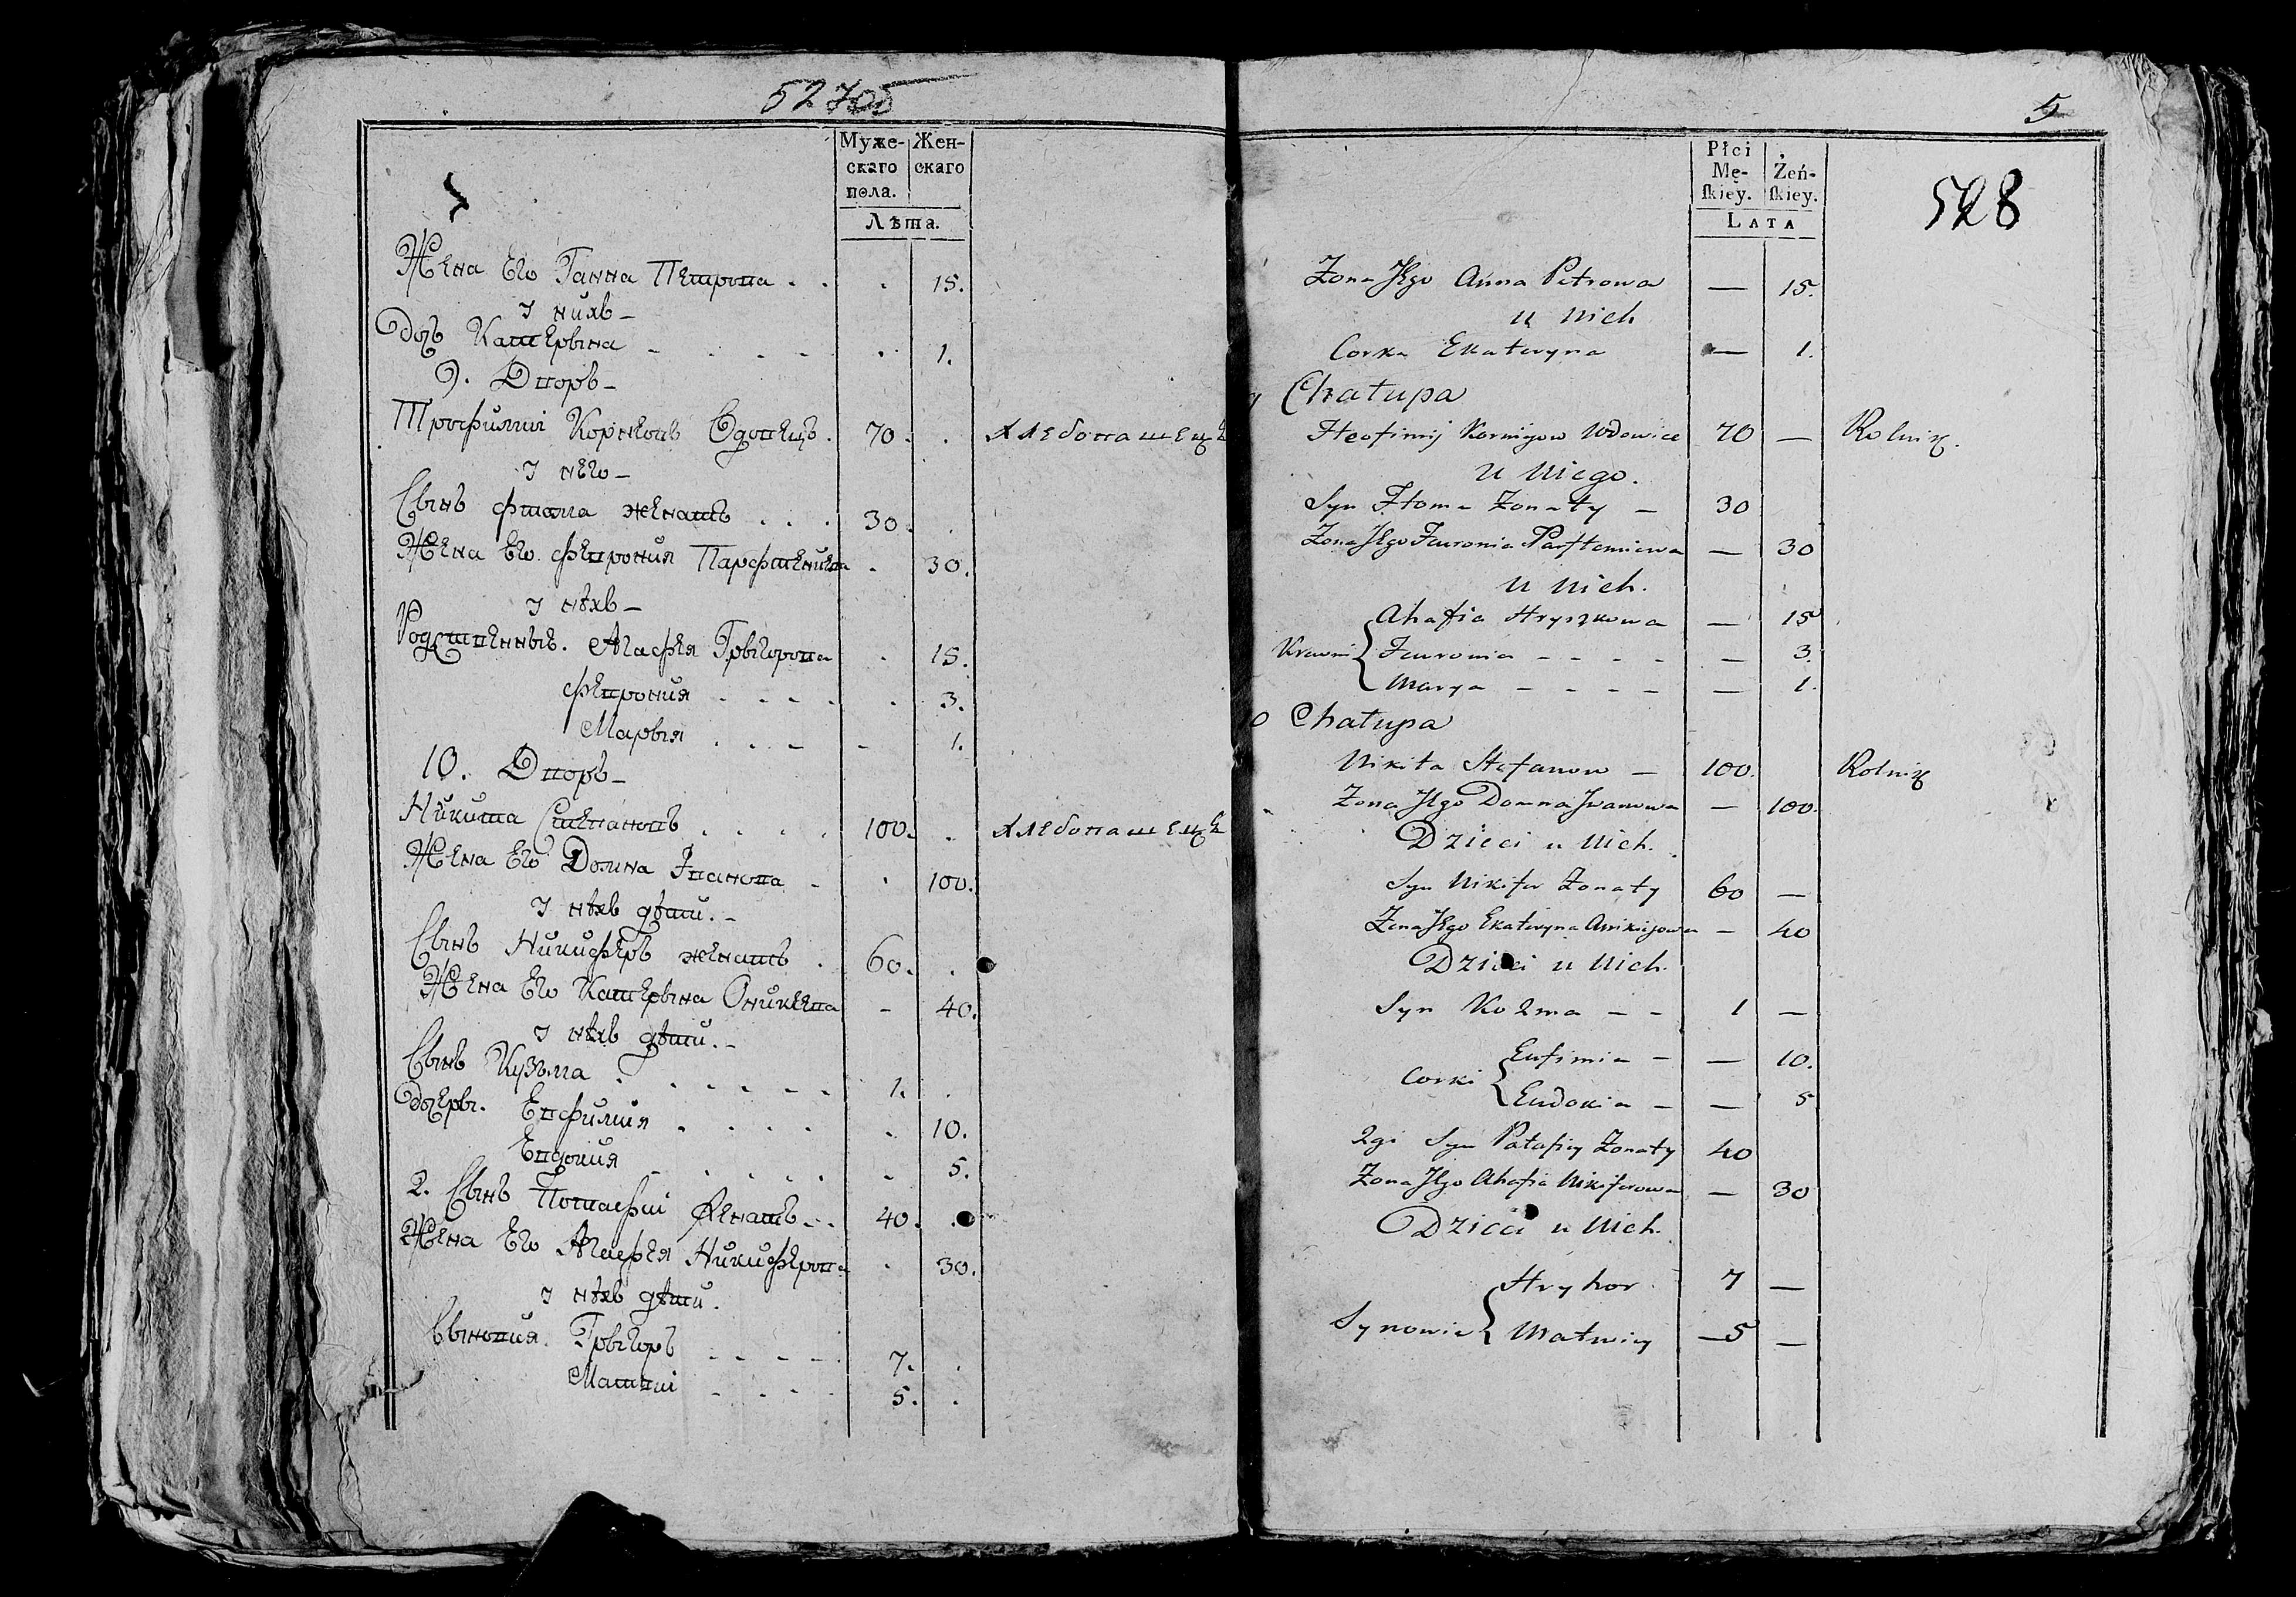 527об
Муже-
скаго
пола.
Жен-
скаго
Лѣта.
Жена Его Ганна Петрова . . . 15.
У нихъ –
дочь Катерына – . . . . 1.
9. Дворъ –
Трофимій Корнѣовъ Вдовецъ . 70. . хлебопашецъ
У него –
Сынъ Фтома женатъ . . . 30. .
Жена Его Февронія Парфтеніева . 30.
У нѣхъ –
Родственныѣ. Агафѣя Грыгорова . 15.
Февронія . . . . 3.
Марыя . . . – 1.
10. Дворъ –
Никита Степановъ . . . . 100. . хлебопашецъ
Жена Его Домна Іванова – . 100.
У нѣхъ дѣти. –
Сынъ Никифѣръ женатъ . 60. .
Жена Его Катерына Оникѣева – 40.
У нѣхъ дѣти. –
Сынъ Кузьма . . . . . 1. .
дочеры. Евфимія . . . . . 10.
Евдокия – . . . . 5.
2. Сынъ Потафій Женатъ – . . 40. .
Жена Его Агафѣя Никифѣрова . 30.
У нѣхъ дѣти.
Сыновия. Грыгоръ . . . . 7. .
Матвій . . . . 5. .
5
528
Płci
Mę-
ſkiey.
Żeń-
ſkiey.
LATA
Zona Jego Anna Petrowa — 15.
u Nich
Corka Ekateryna — 1.
Chatupa
Heofimij Korniyow Wdowiec 70 — Rolnik.
u Niego.
Syn Ftoma Zonaty – 30
Zona Jego Feuronia Parftemiewa — 30
u Nich.
Krewni { Ahafia Hryszkowa — 15
Feuronia – – – – — 3.
Marya – – – – — 1.
Chatupa
Nikita Stefanow – 100. Rolnik
Zona Jego Domna Jwanowa — 100.
Dzieci u Nich.
Syn Nikifor Zonaty 60 —
Zona Jego Ekateryna Anikiejowa – 40
Dzieci u Nich.
Syn Kozma – – 1 —
Corki { Eufimia – — 10.
Eudokia – — 5
2gi Syn Patafiy Zonaty 40
Zona Jego Ahafia Nikiforowa — 30
Dzieci u Nich.
Synowie { Hryhor 7 —
Matwiey – 5 —